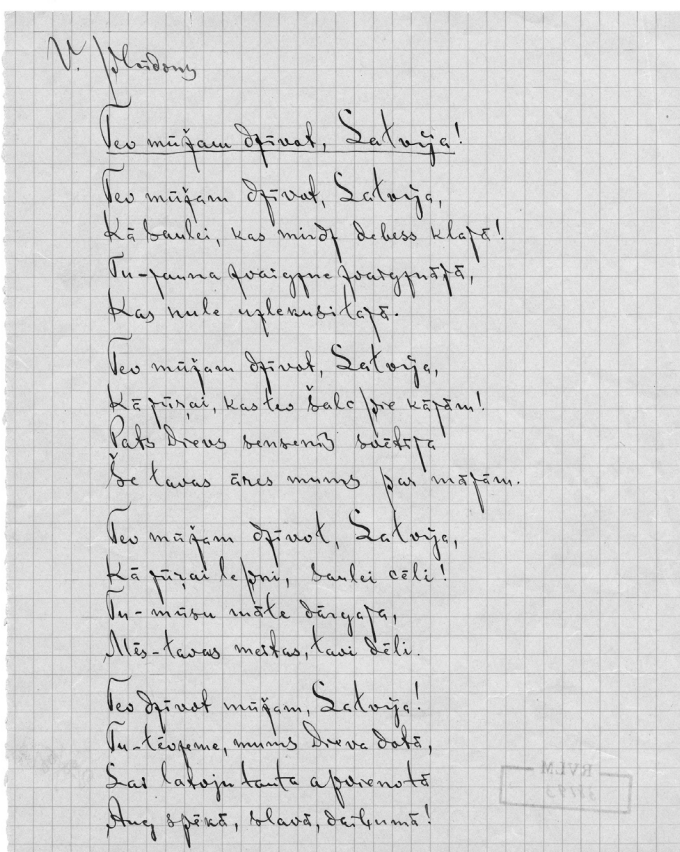 V. Plūdonis
Tev mūžam dzīvot, Latvija!
Tev mūžam dzīvot, Latvija,
Kā saulei, kas mirdz debess klajā!
Tu-jauna zvaigzne zvaigznājā,
Kas nule uzlekusi tajā.
Tev mūžam dzīvot, Latvija,
Kā jūŗai, kas tev šalc pie kājām!
Pats Dievs sensenis svētīja
Še tavas āres mums par mājām.
Tev mūžam dzīvot, Latvija,
Kā jūŗai lepni, saulei cēli!
Tu-mūsu māte dārgajā,
Mēs-tavas meitas, tavi dēli.
Tev dzīvot mūžam, Latvija!
Tu-tēvzeme, mums Dieva dotā,
Lai latvju tauta apvienotā
Aug spēkā, slavā, daiļumā!
RVLM